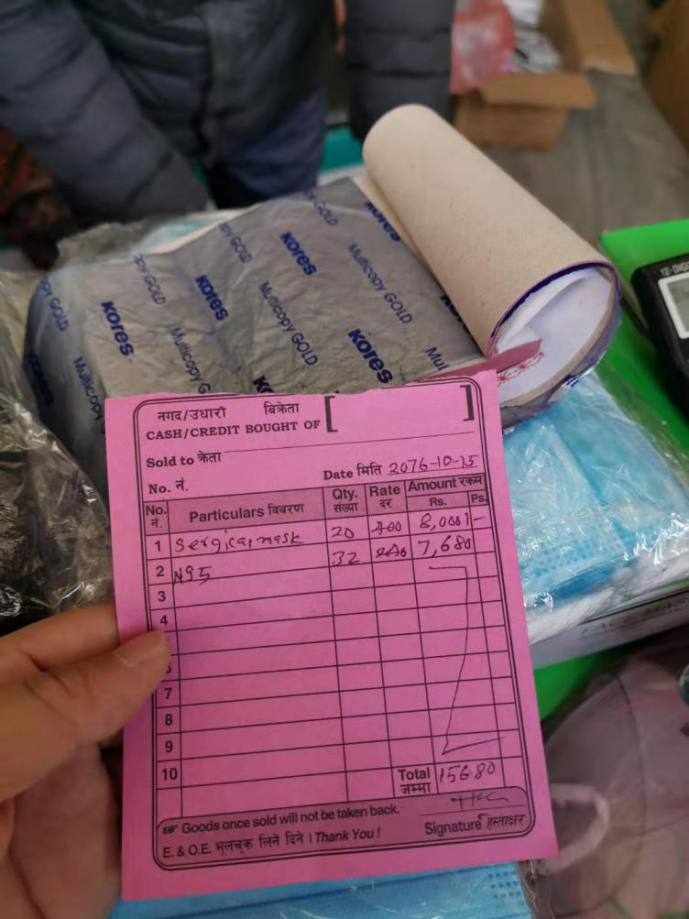 KORES
Multicopy GOLD
KORES
Multicopy GOLD
KORES
Multicopy GOLD
KORES
12-DIGI
नगद/उधारो बिक्रेता
CASH/CREDIT BOUGHT OF [ ]
Sold to क्रेता
No. नं. Date मिति 2076-10-15
No. नं. Particulars विवरण Qty. संख्या Rate दर Amount रकम Rs. Ps.
1 Sergical mask 20 400 8,000/-
2 N95 32 240 7,680
3
4
7
8
9
10
Total जम्मा 15680
Goods once sold will not be taken back.
E. & O.E. भूलचूक लिने दिने । Thank You!
Signature हस्ताक्षर